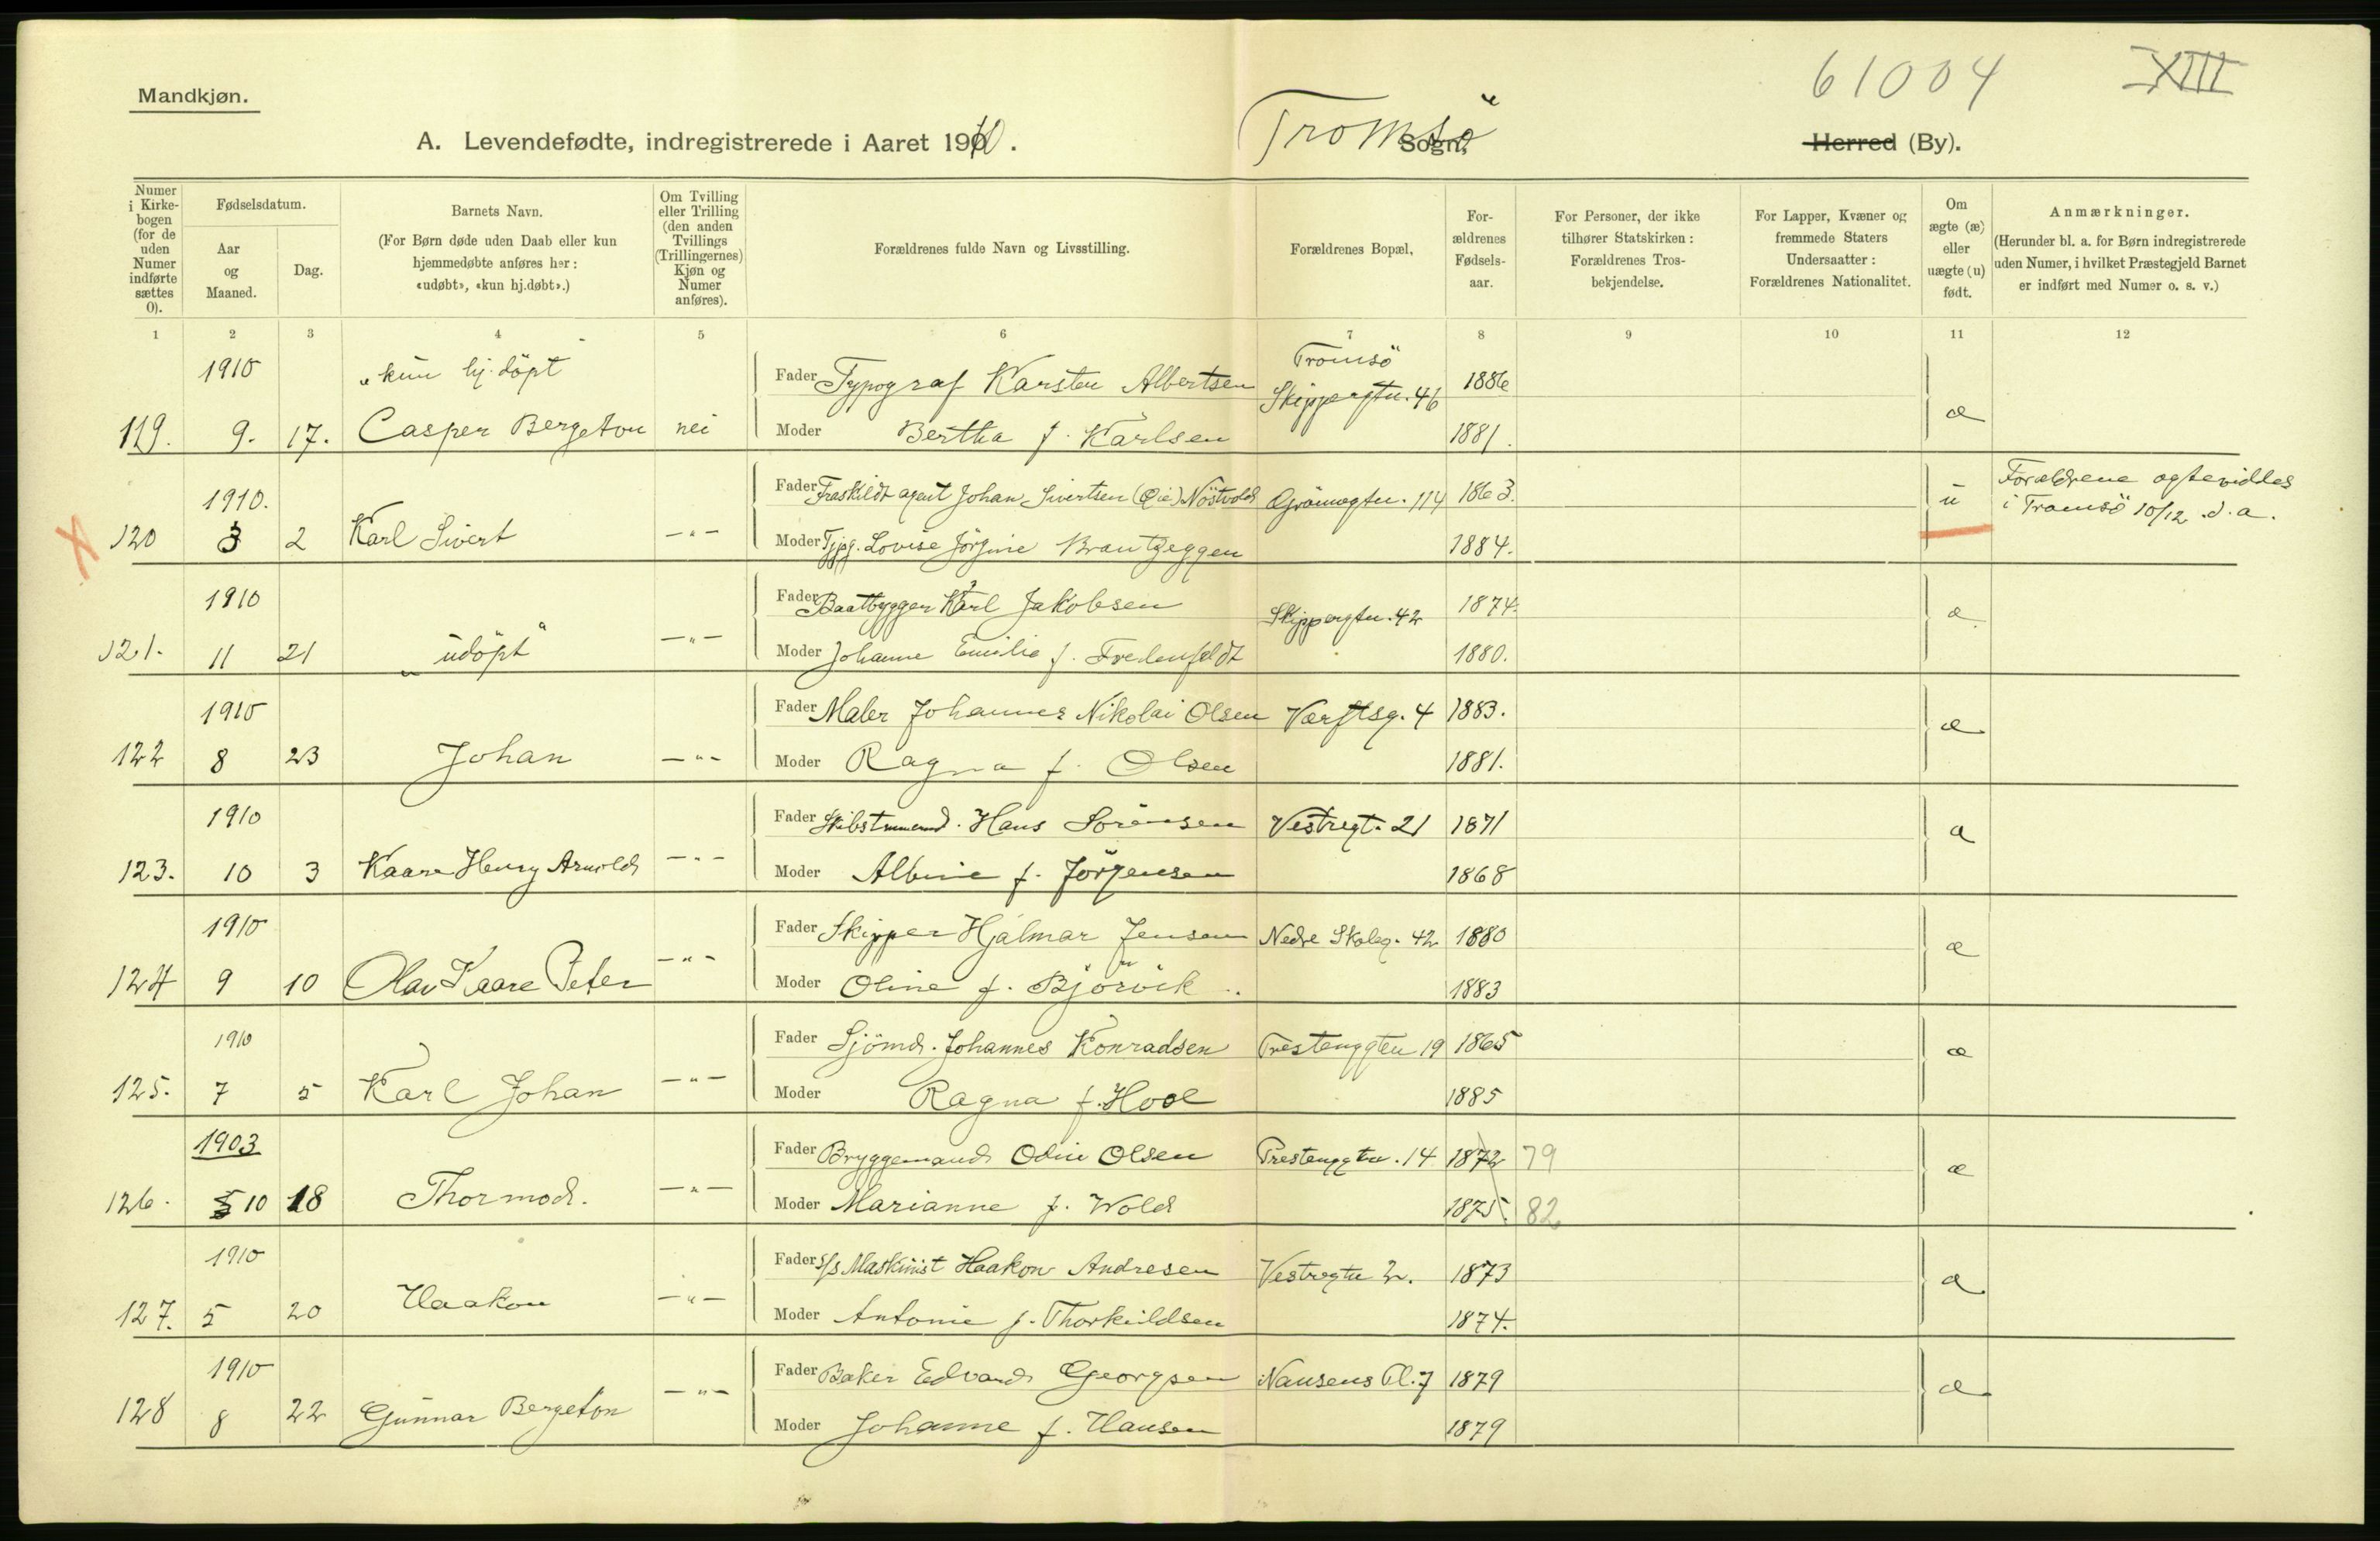 61004 XIII
Mandkjøn.
A. Levendefødte, indregistrerede i Aaret 1910. Tromsö Sogn, Herred (By).
Numer i Kirkebogen (for de uden Numer indførte sættes 0).
Fødselsdatum.
Aar og Maaned.
Dag.
Barnets Navn.
(For Børn døde uden Daab eller kun hjemmedøbte anføres her: «udøbt», «kun hj.døbt».)
Om Tvilling eller Trilling (den anden Tvillings (Trillingernes) Kjøn og Numer anføres).
Forældrenes fulde Navn og Livsstilling.
Forældrenes Bopæl,
Forældrenes Fødselsaar.
For Personer, der ikke tilhører Statskirken: Forældrenes Trosbekjendelse.
For Lapper, Kvæner og fremmede Staters Undersaatter: Forældrenes Nationalitet.
Om ægte (æ) eller uægte (u) født.
Anmærkninger.
(Herunder bl. a. for Børn indregistrerede uden Numer, i hvilket Præstegjeld Barnet er indført med Numer o. s. v.)
1 2 3 4 5 6 7 8 9 10 11 12
1910 „kun hj. döpt" Fader Typograf Karsten Albertsen Tromsö Skippergtn. 46 1886 æ
119. 9. 17. Casper Bergeton nei Moder Bertha f. Karlsen 1881.
1910. Fader Fraskildt agent Johan Sivertsen (Öie) Nöstvold Grönnegtn. 114 1863. u Forældrene ægteviddes
120 3 2 Karl Sivert —"— Moder Typg. Lovise Jörgine Brantzeggen 1884. i Tromsö 10/12 d. a.
1910 Fader Baatbygger Karl Jakobsen Skippergtn. 42 1874. æ
121. 11 21 „udöpt" —"— Moder Johanne Emilie f. Fredenfeldt 1880.
1910 Fader Maler Johannes Nikolai Olsen Værftsg. 4 1883. æ
122 8 23 Johan —"— Moder Ragna f. Olsen 1881.
1910 Fader Skibstmmend. Hans Sörensen Vestregt. 21 1871 æ
123. 10 3 Kaare Henry Arnold —"— Moder Albine f. Jörgensen 1868
1910 Fader Skipper Hjalmar Jensen Nedre Skoleg. 42 1880 æ
124 9 10 Olav Kaare Peter —"— Moder Oline f. Björvik 1883
1910 Fader Sjömd. Johannes Konradsen Prestenggten 19 1865 æ
125. 7 5 Karl Johan —"— Moder Ragna f. Hool 1885
1903 Fader Bryggemand Odin Olsen Prestenggtn. 14 1872 79 æ
126. 5 10 18 Thormod. —"— Moder Marianne f. Wold 1875. 82
1910 Fader s/s Maskinist Haakon Andresen Vestregtn 2. 1873 æ
127. 5 20 Haakon —"— Moder Antonie f. Thorkildsen 1874.
1910 Fader Baker Edvard Georgsen Nansens Pl. 7 1879 æ
128 8 22 Gunnar Bergeton —"— Moder Johanne f. Hansen 1879